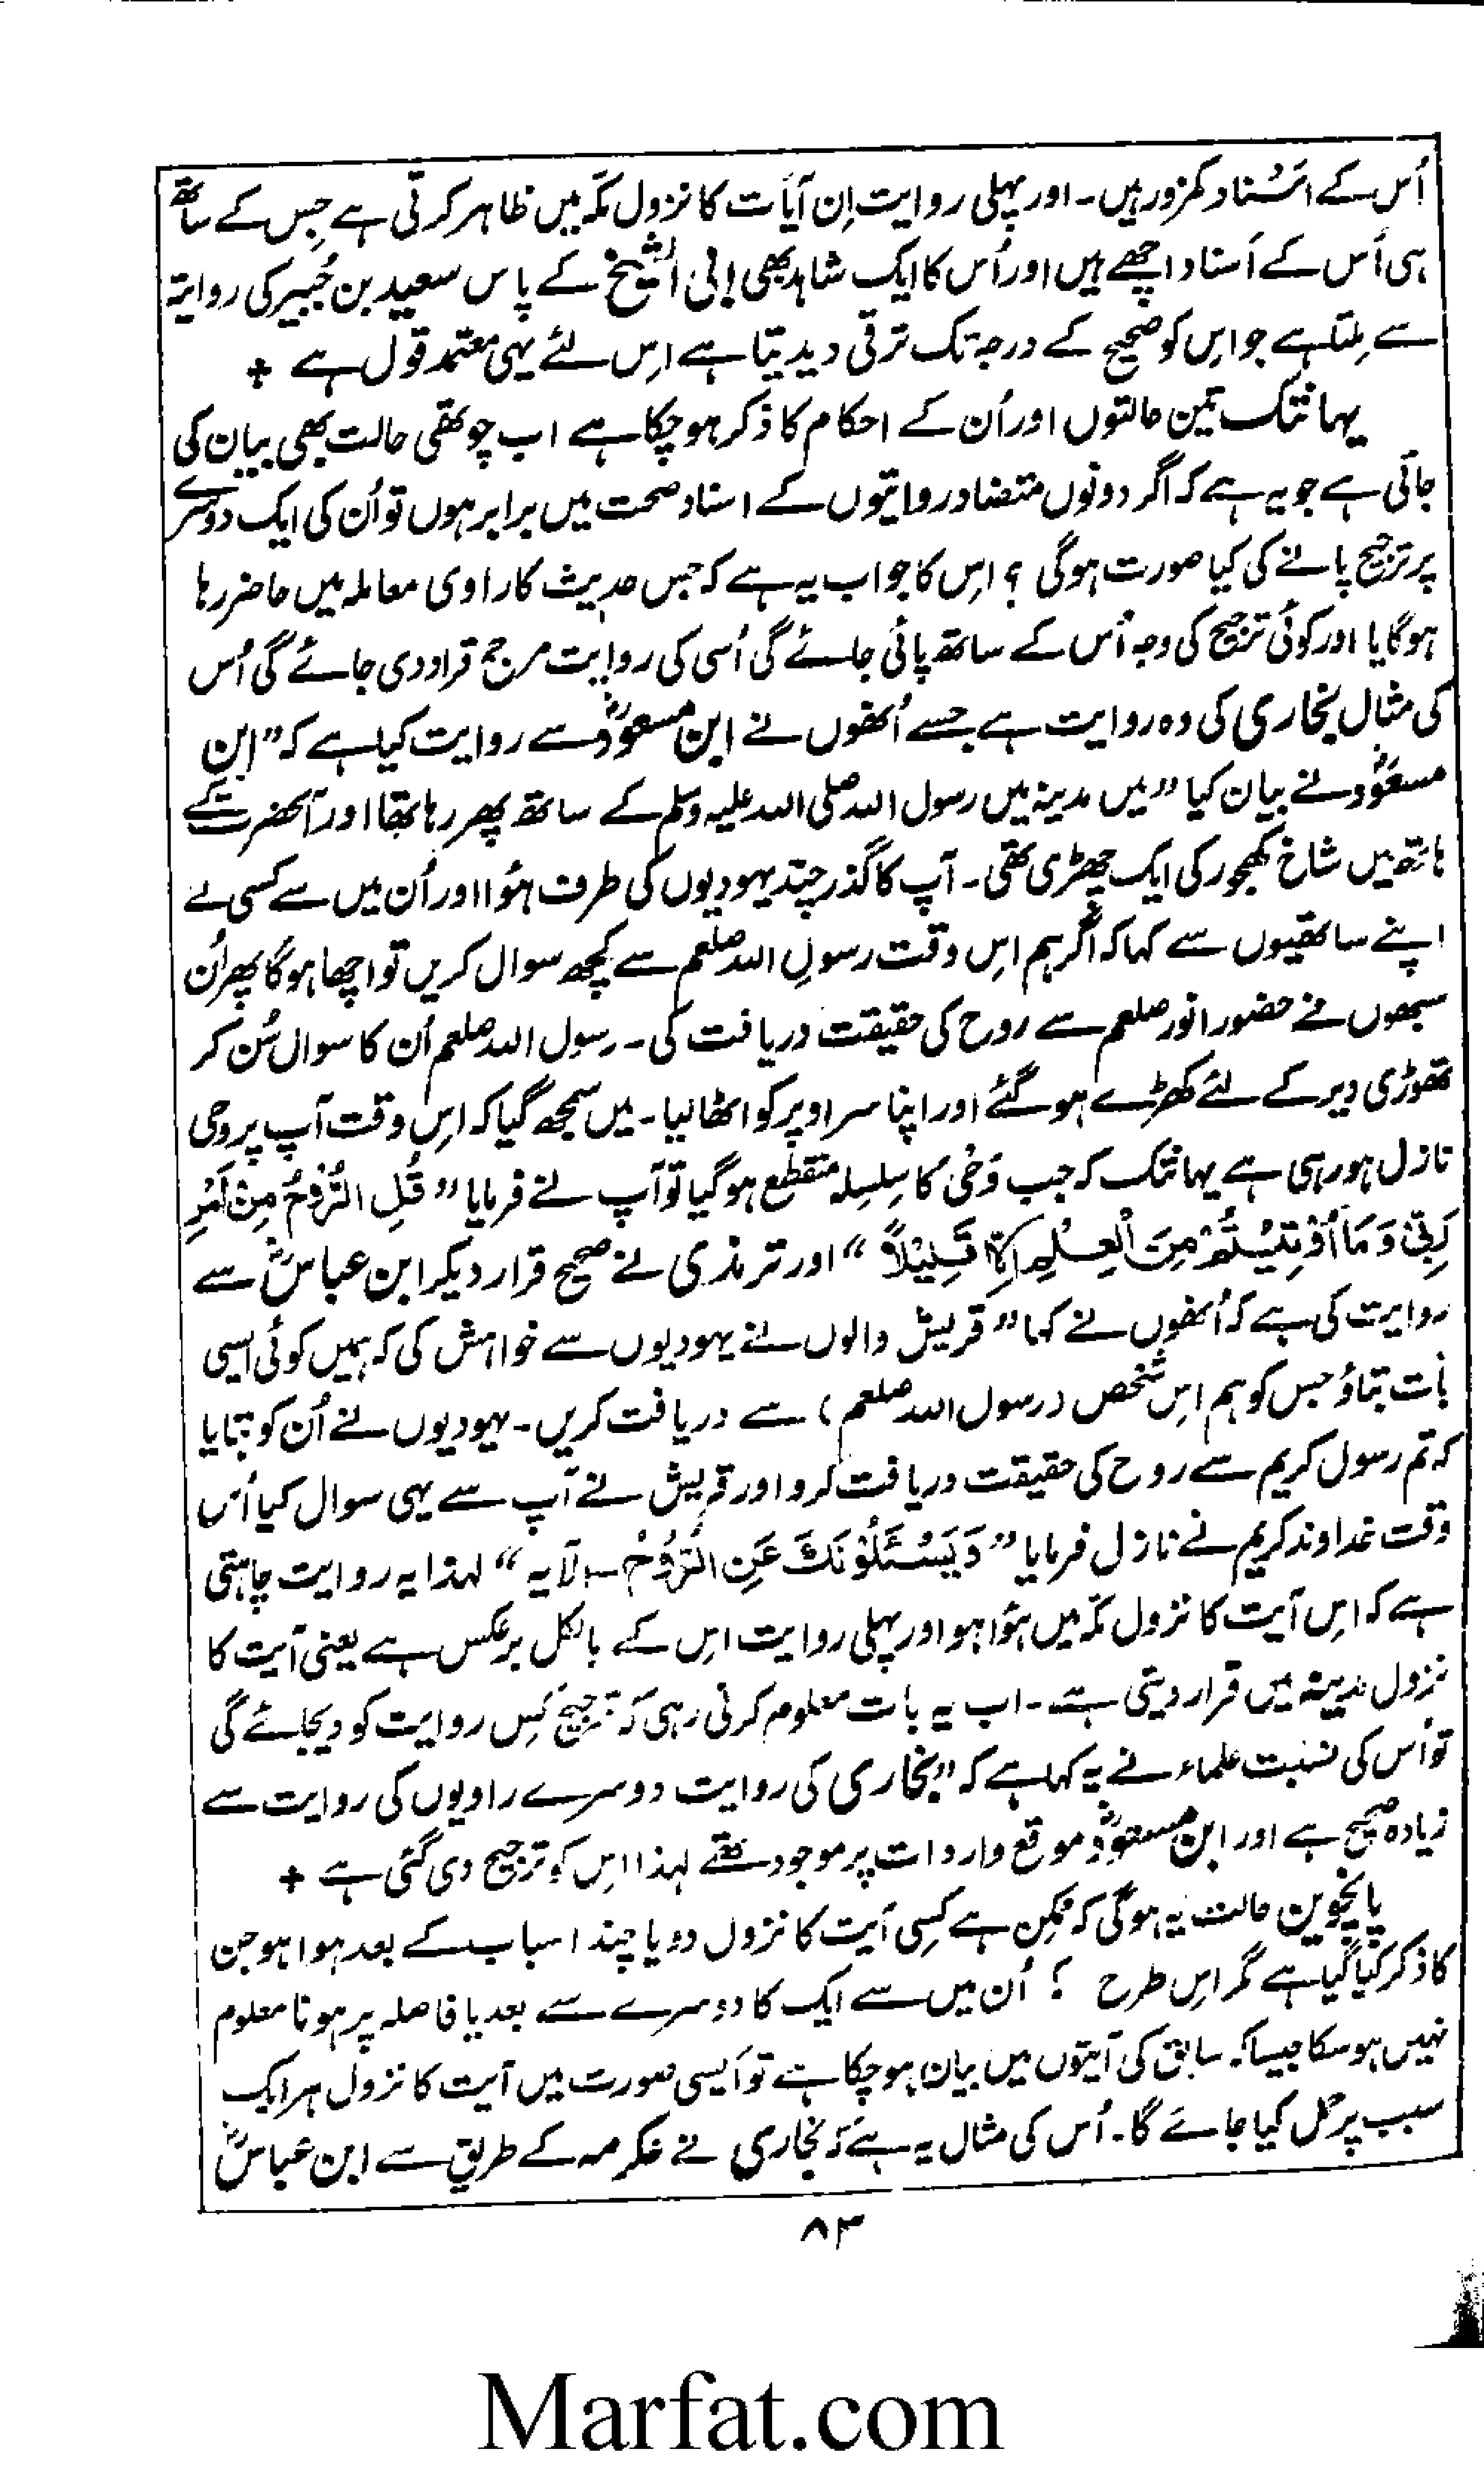 اُس کے اسْناد کمزور ہیں۔ اور پہلی روایت اِن آیات کا نزول مکّہ میں ظاہر کرتی ہے جِس کے ساتھ
ہی اُس کے اَسناد اچھے ہیں اور اُس کا ایک شاہد بھی ابی الشیخ کے پاس سعید بن جُبیر کی روایۃ
سے مِلتا ہے جو اِس کو صحیح کے درجہ تک ترقی دیدیتا ہے اِس لئے یہی معتمد قول ہے +
یہانتک تین حالتوں اور اُن کے احکام کا ذکر ہو چکا ہے اب چوتھی حالت بھی بیان کی
جاتی ہے جو یہ ہے کہ اگر دونوں متضاد روایتوں کے اسناد صحت میں برابر ہوں تو اُن کی ایک دوسرے
پر ترجیح پانے کی کیا صورت ہوگی ؟ اِس کا جواب یہ ہے کہ جس حدیث کا راوی معاملہ میں حاضر رہا
ہوگا یا اور کوئی ترجیح کی وجہ اُس کے ساتھ پائی جائے گی اُسی کی روایت مرجح قرار دی جائے گی اُس
کی مثال بخاری کی وہ روایت ہے جسے اُنھوں نے ابن مسعودؓ سے روایت کیا ہے کہ "ابن
مسعودؓ نے بیان کیا "میں مدینہ میں رسول اللہ صلی اللہ علیہ وسلم کے ساتھ پھر رہا تھا اور آنحضرت کے
ہاتھ میں شاخ کھجور کی ایک چھڑی تھی۔ آپ کا گذر چند یہودیوں کی طرف ہؤا اور اُن میں سے کسی نے
اپنے ساتھیوں سے کہا کہ اگر ہم اِس وقت رسولِ اللہ صلعم سے کچھ سوال کریں تو اچھا ہوگا پھر اُن
سبھوں نے حضور انور صلعم سے روح کی حقیقت دریافت کی۔ رسول اللہ صلعم اُن کا سوال سُن کر
تھوڑی دیر کے لئے کھڑے ہو گئے اور اپنا سر اوپر کو اٹھا لیا۔ میں سمجھ گیا کہ اِس وقت آپ پر وحی
نازل ہو رہی ہے یہانتک کہ جب وَحْی کا سِلسِلہ منقطع ہو گیا تو آپ نے فرمایا "قُلِ الرُّوْحُ مِنْ اَمْرِ
رَبِّیْ وَمَا اُوْتِیْتُمْ مِنَ الْعِلْمِ اِلَّا قَلِیْلاً" اور ترمذی نے صحیح قرار دیکر ابن عباسؓ سے
روایت کی ہے کہ اُنھوں نے کہا "قریش والوں نے یہودیوں سے خواہش کی کہ ہمیں کوئی ایسی
بات بتاؤ جس کو ہم اِس شخص (رسول اللہ صلعم) سے دریافت کریں۔ یہودیوں نے اُن کو بتایا
کہ تم رسول کریم سے روح کی حقیقت دریافت کرو اور قریش نے آپ سے یہی سوال کیا اُس
وقت خداوند کریم نے نازل فرمایا "وَیَسْئَلُوْنَكَ عَنِ الرُّوْحِ۔ الآیہ" لہذا یہ روایت چاہتی
ہے کہ اِس آیت کا نزول مکّہ میں ہؤا ہو اور پہلی روایت اِس کے بالکل برعکس ہے یعنی آیت کا
نزول مدینہ میں قرار دیتی ہے۔ اب یہ بات معلوم کرنی رہی کہ ترجیح کِس روایت کو دیجائے گی
تو اُس کی نسبت علماء نے یہ کہا ہے کہ "بخاری کی روایت دوسرے راویوں کی روایت سے
زیادہ صحیح ہے اور ابن مسعودؓ موقع واردات پر موجود تھے لہذا اِس کو ترجیح دی گئی ہے +
پانچویں حالت یہ ہوگی کہ ممکن ہے کسی آیت کا نزول دو یا چند اسباب کے بعد ہوا ہو جن
کا ذکر کیا گیا ہے مگر اِس طرح ؟ اُن میں سے ایک کا دوسرے سے بعد یا فاصلہ پر ہونا معلوم
نہیں ہو سکا جیسا کہ سابق کی آیتوں میں بیان ہو چکا ہے تو اَیسی صورت میں آیت کا نزول ہر ایک
سبب پر حمل کیا جائے گا۔ اُس کی مثال یہ ہے کہ بخاری نے عکرمہ کے طریق سے ابن عباسؓ
۸۳
Marfat.com